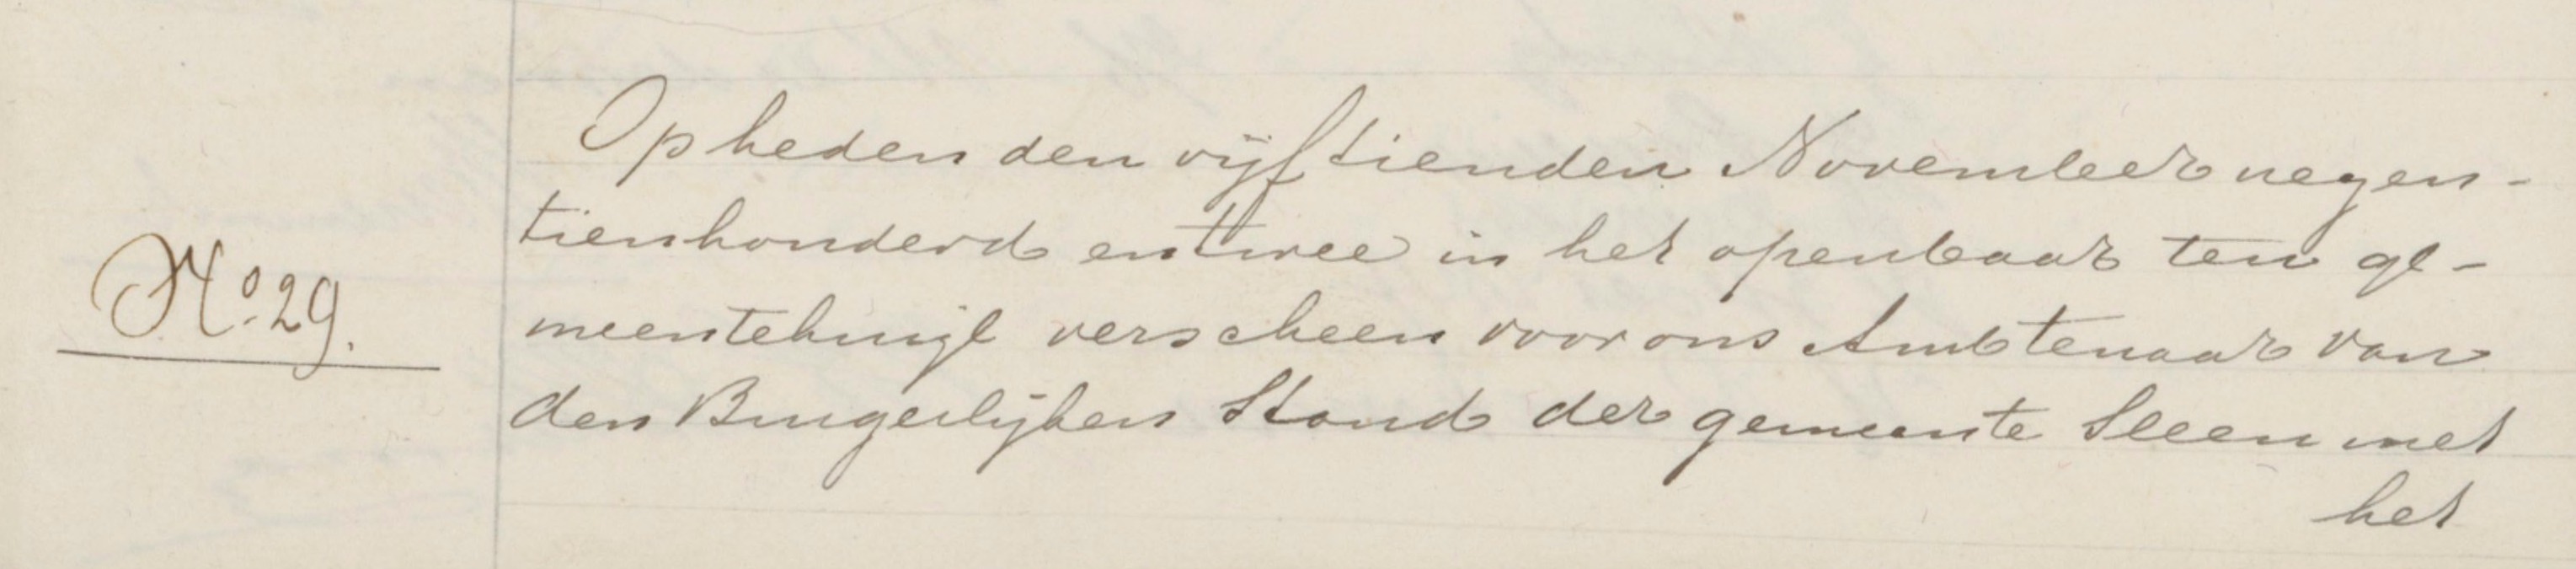 Op heden den vijftienden November negen-
tienhonderd en twee in het openbaar ten ge-
No. 29.
meentehuize verscheen voor ons Ambtenaar van
den Burgerlijken Stand der gemeente Sleen met
het